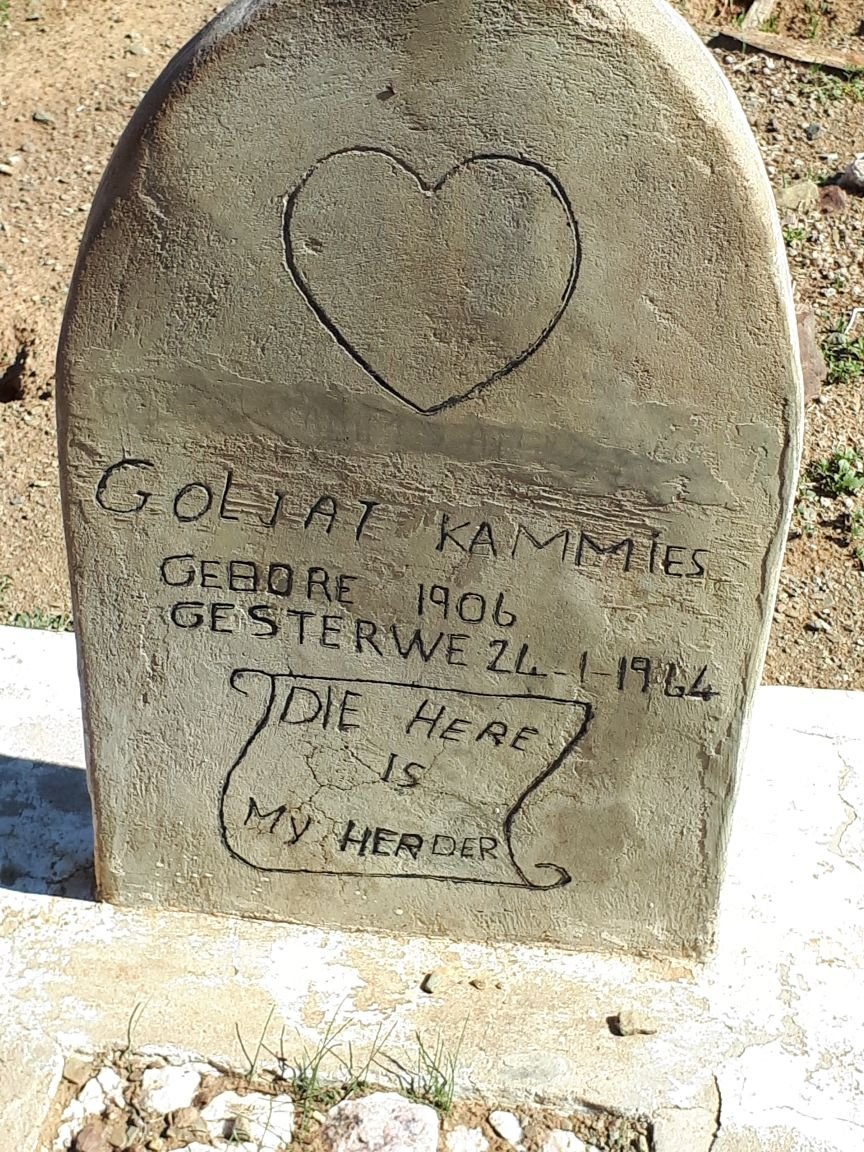 GOLJAT KAMMIES
GEBORE 1906
GESTERWE 24-1-1964
DIE HERE
IS
MY HERDER